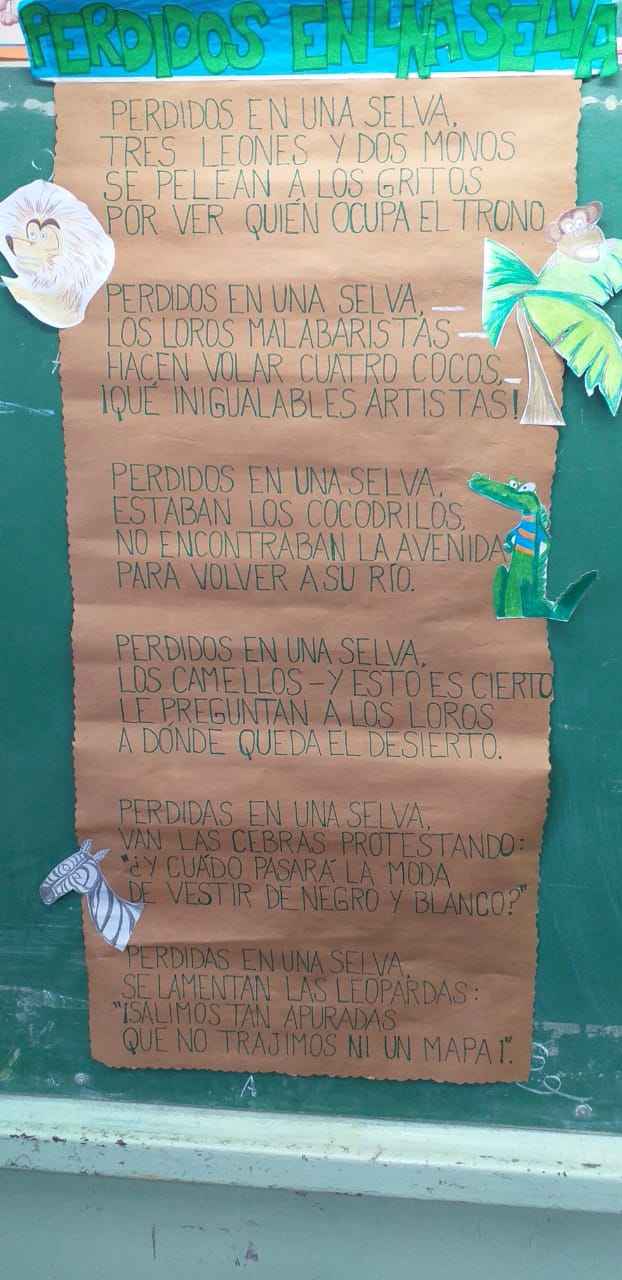 PERDIDOS EN UNA SELVA
PERDIDOS EN UNA SELVA,
TRES LEONES Y DOS MONOS
SE PELEAN A LOS GRITOS
POR VER QUIÉN OCUPA EL TRONO.
PERDIDOS EN UNA SELVA,
LOS LOROS MALABARISTAS
HACEN VOLAR CUATRO COCOS,
¡QUÉ INIGUALABLES ARTISTAS!
PERDIDOS EN UNA SELVA,
ESTABAN LOS COCODRILOS,
NO ENCONTRABAN LA AVENIDA
PARA VOLVER A SU RÍO.
PERDIDOS EN UNA SELVA,
LOS CAMELLOS – Y ESTO ES CIERTO
LE PREGUNTAN A LOS LOROS
A DÓNDE QUEDA EL DESIERTO.
PERDIDAS EN UNA SELVA,
VAN LAS CEBRAS PROTESTANDO:
"¿Y CUÁDO PASARÁ LA MODA
DE VESTIR DE NEGRO Y BLANCO?"
PERDIDAS EN UNA SELVA,
SE LAMENTAN LAS LEOPARDAS:
"¡SALIMOS TAN APURADAS
QUE NO TRAJIMOS NI UN MAPA¡".
A